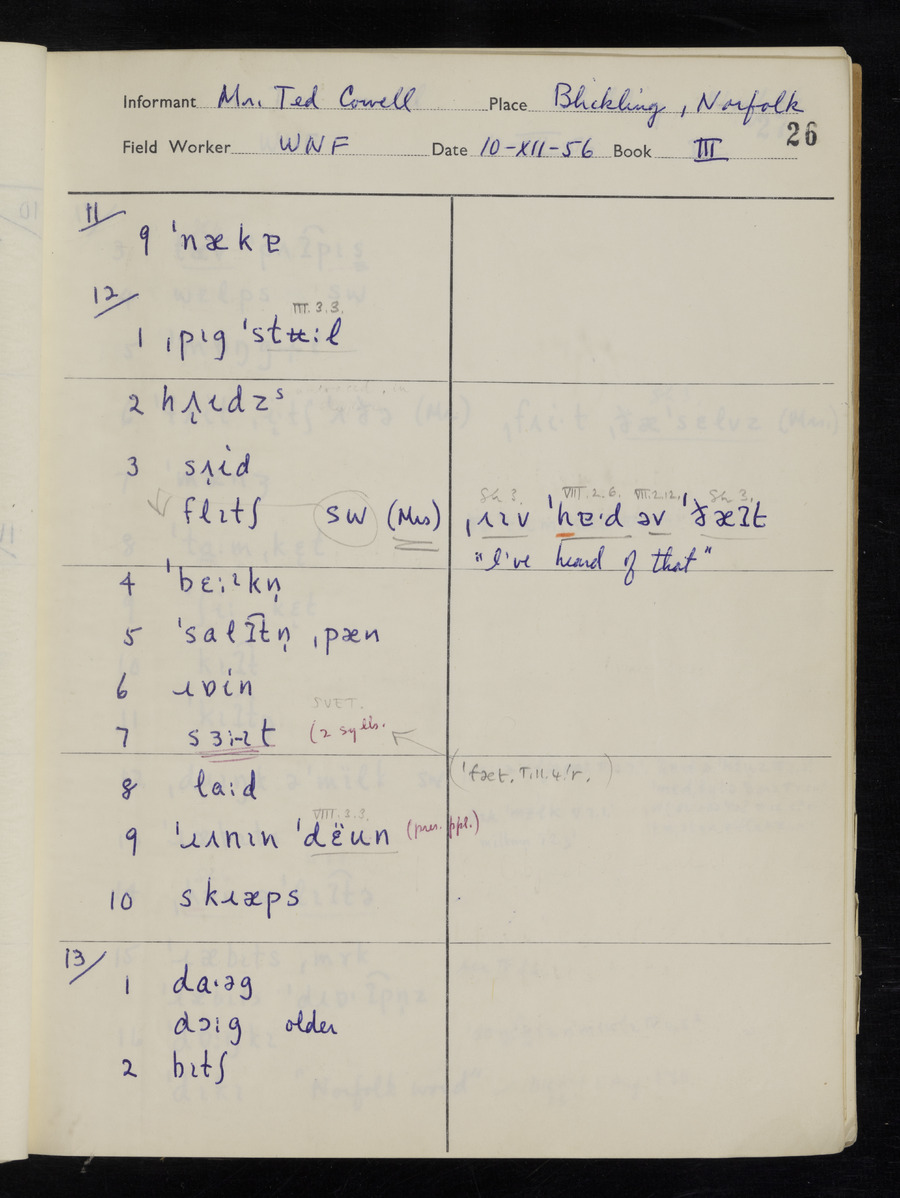 Informant Mr. Ted Cowell Place Blickling, Norfolk
26
Field Worker WNF Date 10-XII-56 Book III
11/
9 ˈnækɐ
12/
III. 3. 3.
1 ˌpɪg ˈstʉːl
2 hɹ̣ɪdzˢ
3 sɹ̣id
flɪtʃ SW (Mrs) ˌɹɪv ˈhɐˑd əv ˈðæʔt
Sh 3. VIII. 2. 6. VII. 2. 12. Sh 3.
"I've heard of that"
4 ˈbɛːᶦkn̩
5 ˈsalʔ͡tn̩ ˌpæn
6 ɹɒin
SUET.
7 sɜːɪt (2 sylls.
(ˈfæt. III. 4. ˈr.)
8 laːd
VIII. 3. 3.
9 ˈɹʌnɪn ˈdɛ̈ʉn (pres. ppl.)
10 skɹæps
13/
1 daˑəg
dɔig older
2 bɪtʃ